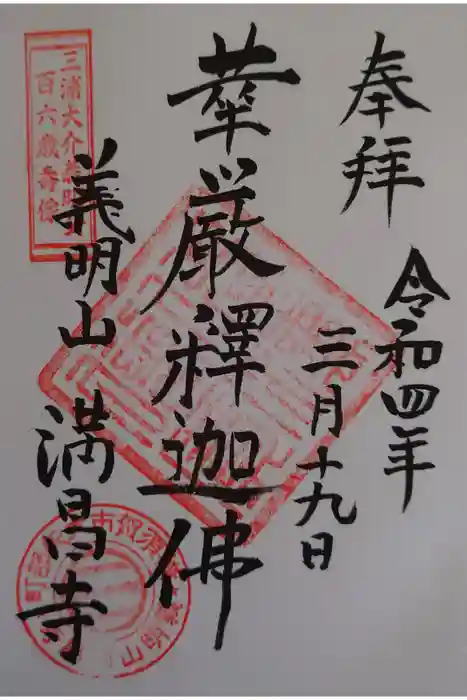 奉拝
令和四年
三月十九日
華厳釋迦佛
三浦大介義明
百六歳寿像
義明山
満昌寺